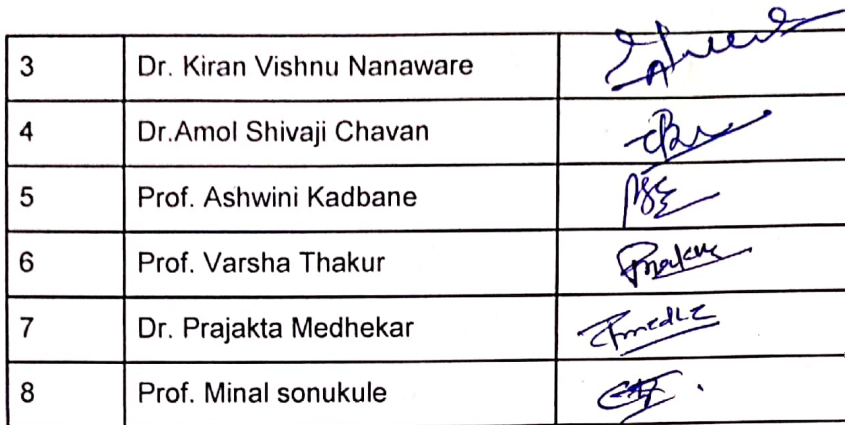 3 Dr. Kiran Vishnu Nanaware
4 Dr.Amol Shivaji Chavan
5 Prof. Ashwini Kadbane
6 Prof. Varsha Thakur
7 Dr. Prajakta Medhekar
8 Prof. Minal sonukule